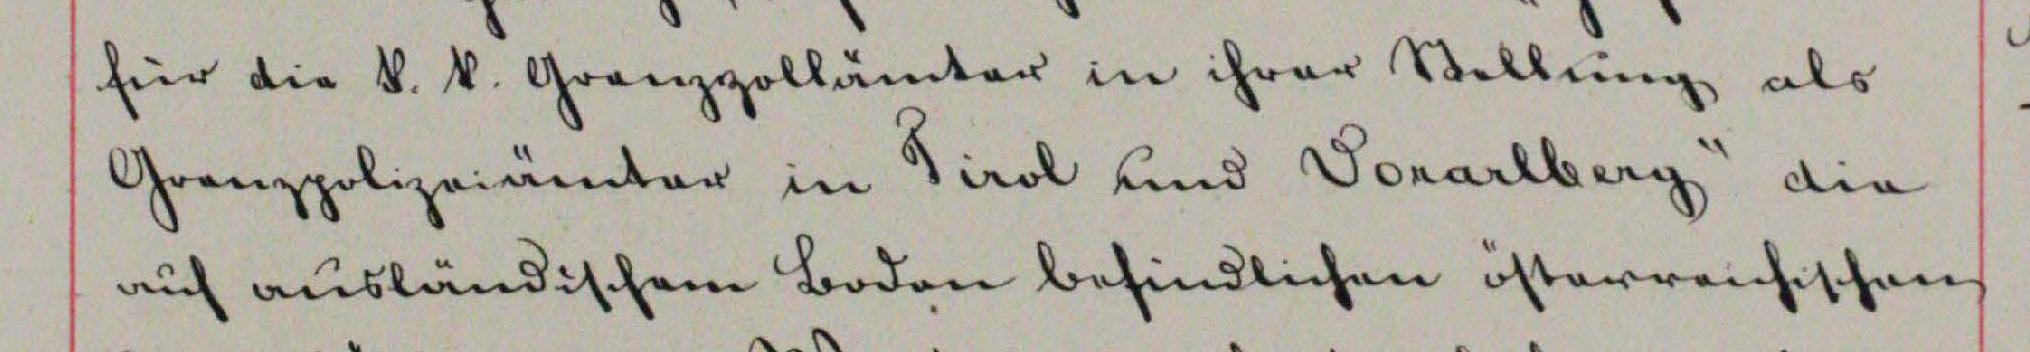 für die k. k. Grenzzollämter in ihrer Stellung als
Grenzpolizeiämter in Tirol und Vorarlberg" die
auf ausländischem Boden befindlichen österreichischen